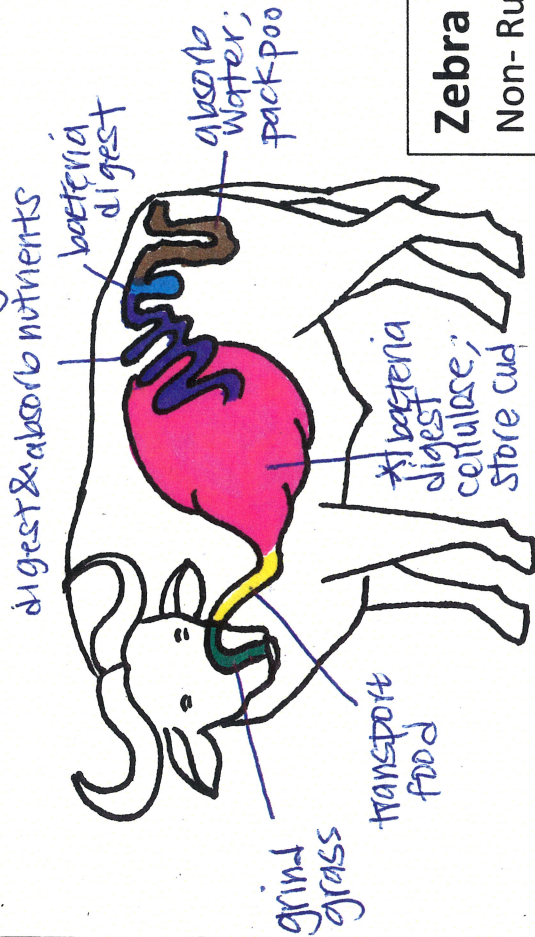 digest & absorb nutrients
bacteria
digest
absorb
water;
pack poo
*bacteria
digest
cellulose;
store cud
transport
food
grind
grass
Zebra
Non- Ru